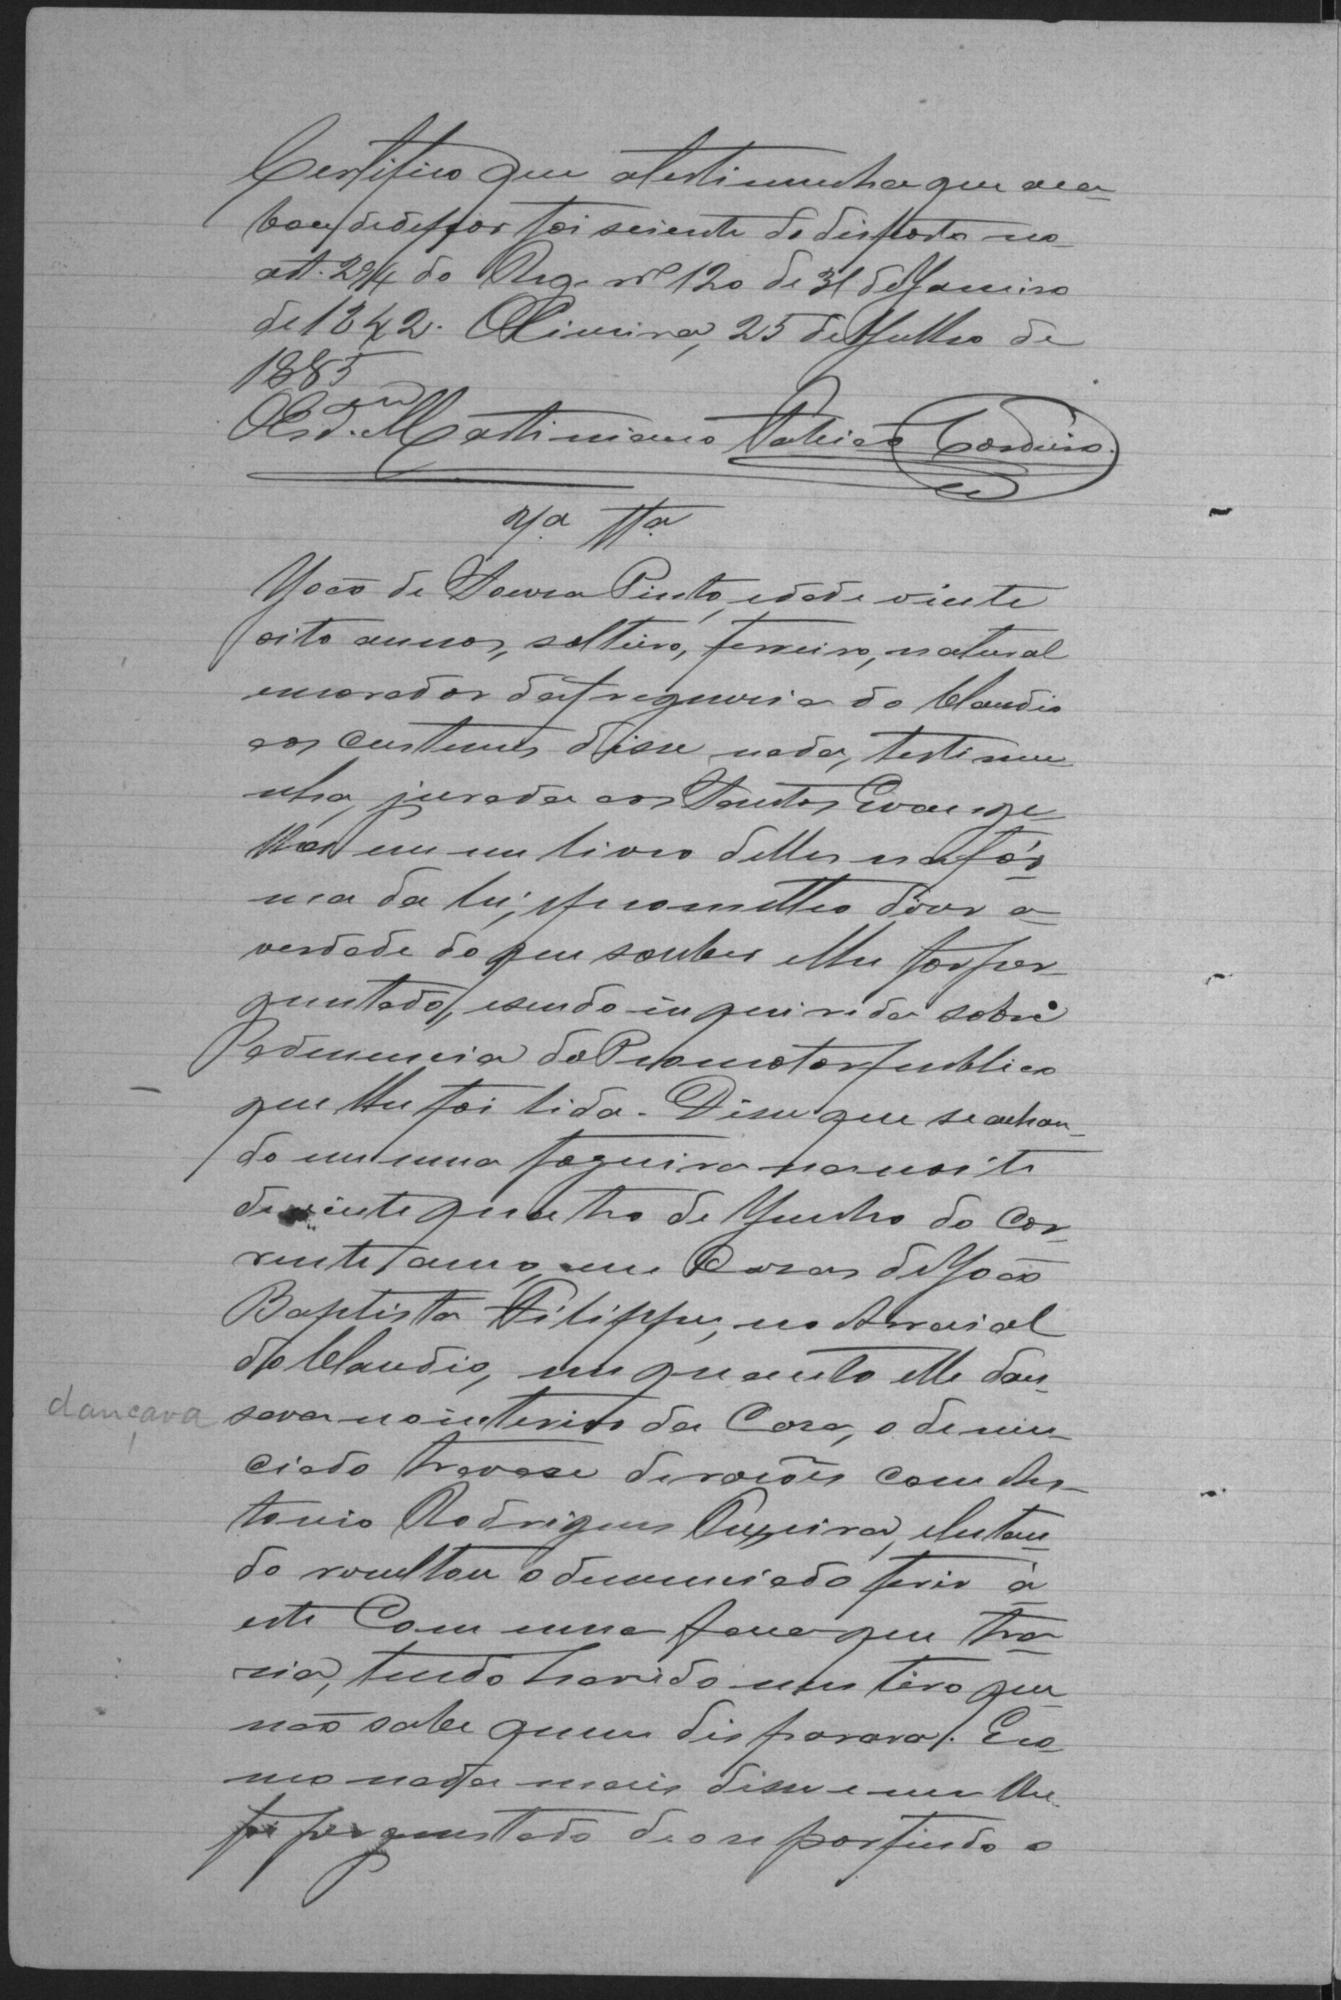 Certifico que a testimunha que aca-
bou de depor foi sciente do disposto no
art. 294 do Reg. nº 120 de 31 de Janeiro
de 1842. Oliveira, 25 de Julho de
1885
O Esc.am Martiniano Cordeiro.
7.a Tt.a
João de Souza Pinto, edade vinte
oito annos, solteiro, ferreiro, natural
emorador da freguesia do Claudio
aos custumes disse nada, testimu-
nha jurada aos Santos Evange
lhos em um livro delles na fór-
ma da lei, eprometteo dizer a
verdade do que souber elhe for per-
guntado, esendo inquirida sobre
adenuncia do Promotor publico
que lhe foi lida. Disse que se achan-
do em uma fogueira na noite
de vinte quatro de Junho do cor-
rente anno, em Casas de João
Baptista Filippe, no Arraial
do Claudio, em quanto elle dan-
dançava
sava no interior da Casa, o denun-
ciado travase de rasões com An-
tonio Rodrigues, elutan-
do resultou o denunciado ferir á
este Com uma faca que tra-
sia, tendo havido um tiro que
não sabe quem disparara. Eco-
mo nada mais disse e nem lhe
foi perguntado deose por findo o